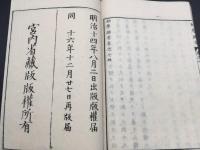 明治十四年八月二日出版版權届
同 十六年十二月廿七日再版届
宮内省藏版 版權所有